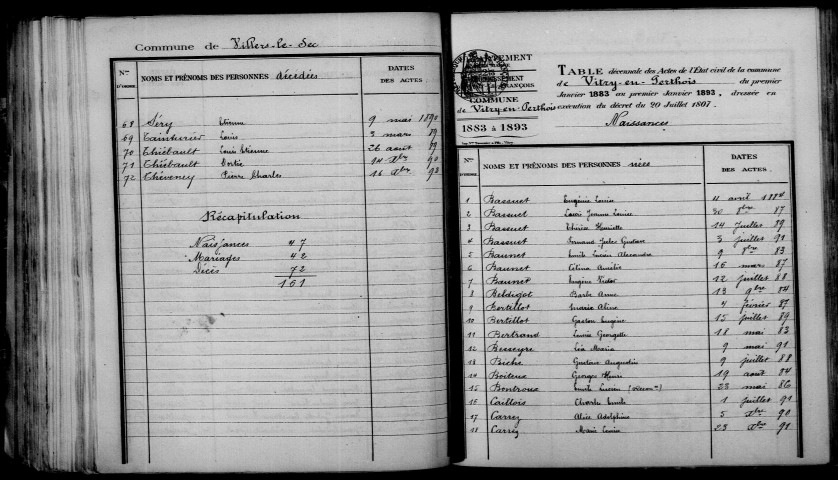 Commune de Villers-le-Sec
Nos D'ORDRE. NOMS ET PRÉNOMS DES PERSONNES décédées DATES DES ACTES.
68 Séry Etienne 9 mai 1890
69 Tainturier Louis 3 mars 89
70 Thiébault Louis Etienne 26 août 89
71 Thiébault 14 Xbre 90
72 Théveney Pierre Charles 16 Xbre 92
Récapitulation
Naissances 47
Mariages 42
Décès 72
161
DÉPARTEMENT
COMMUNE
de Vitry-en-Perthois
1883 à 1893
TABLE décennale des Actes de l'État civil de la commune
de Vitry-en-Perthois du premier
Janvier 1883 au premier Janvier 1893, dressée en
exécution du décret du 20 Juillet 1807.
Naissances
Nos D'ORDRE. NOMS ET PRÉNOMS DES PERSONNES nées DATES DES ACTES.
1 Bassuet Eugénie Louise 4 avril 1884
2 Bassuet Laure Jeanne Louise 30 8bre 87
3 Bassuet Thérèse Henriette 14 Juillet 89
4 Bassuet Fernand Jules Gustave 3 juillet 91
5 Baunet Emile Lucien Alexandre 9 83
6 Baunet Célina Amélie 16 mars 87
7 Baunet Eugène Victor 12 juillet 88
8 Beldigot Barbe Anne 13 9bre 84
9 Bertillot Maria Aline 4 février 87
10 Bertillot Gaston Eugène 15 juillet 89
11 Bertrand Louise Georgette 18 mai 83
12 Besseyre Léa Maria 9 mai 91
13 Biche Gustave Augustin 9 juillet 88
14 Boiteux Georges Henri 19 août 84
15 Bontroux Emile Lucien 23 mai 86
16 Caillois Charles Emile 1 Juillet 91
17 Carrez Alice Adolphine 5 Xbre 90
18 Carrez Marie Louise 23 Xbre 91